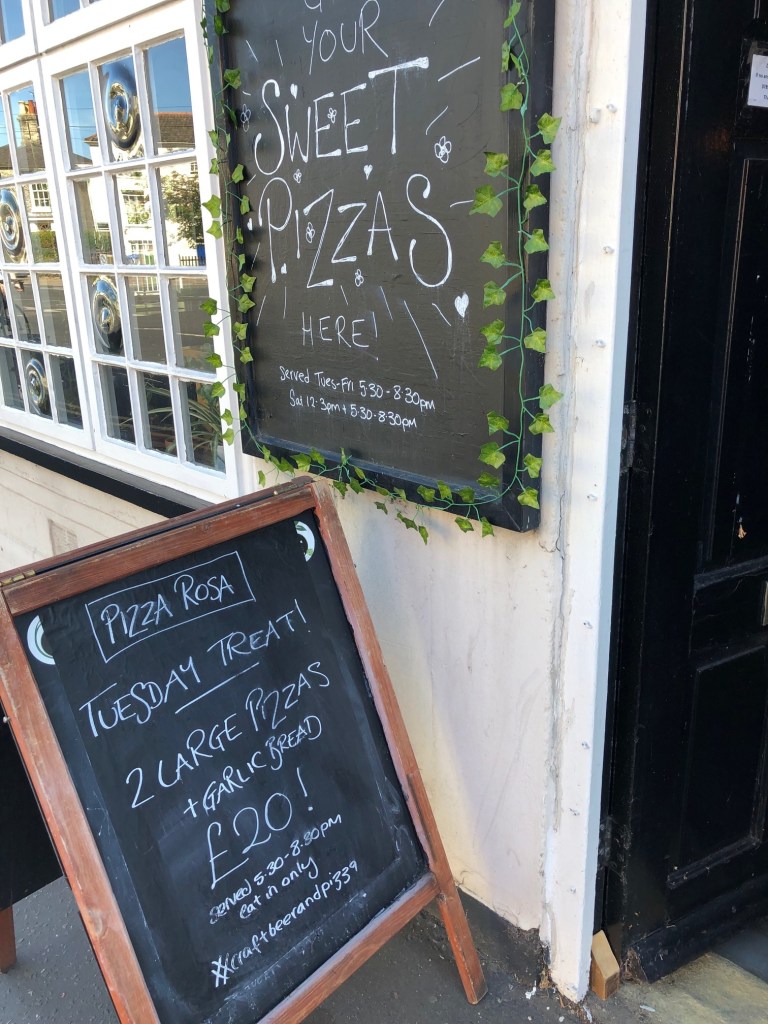 YOUR
SWEET
PIZZAS
HERE!
Served Tues-Fri 5:30-8:30pm
Sat 12-3pm + 5:30-8:30pm
PIZZA ROSA
TUESDAY TREAT!
2 LARGE PIZZAS
+ GARLIC BREAD
£20!
served 5.30-8.30pm
eat in only
#craftbeerandpizza